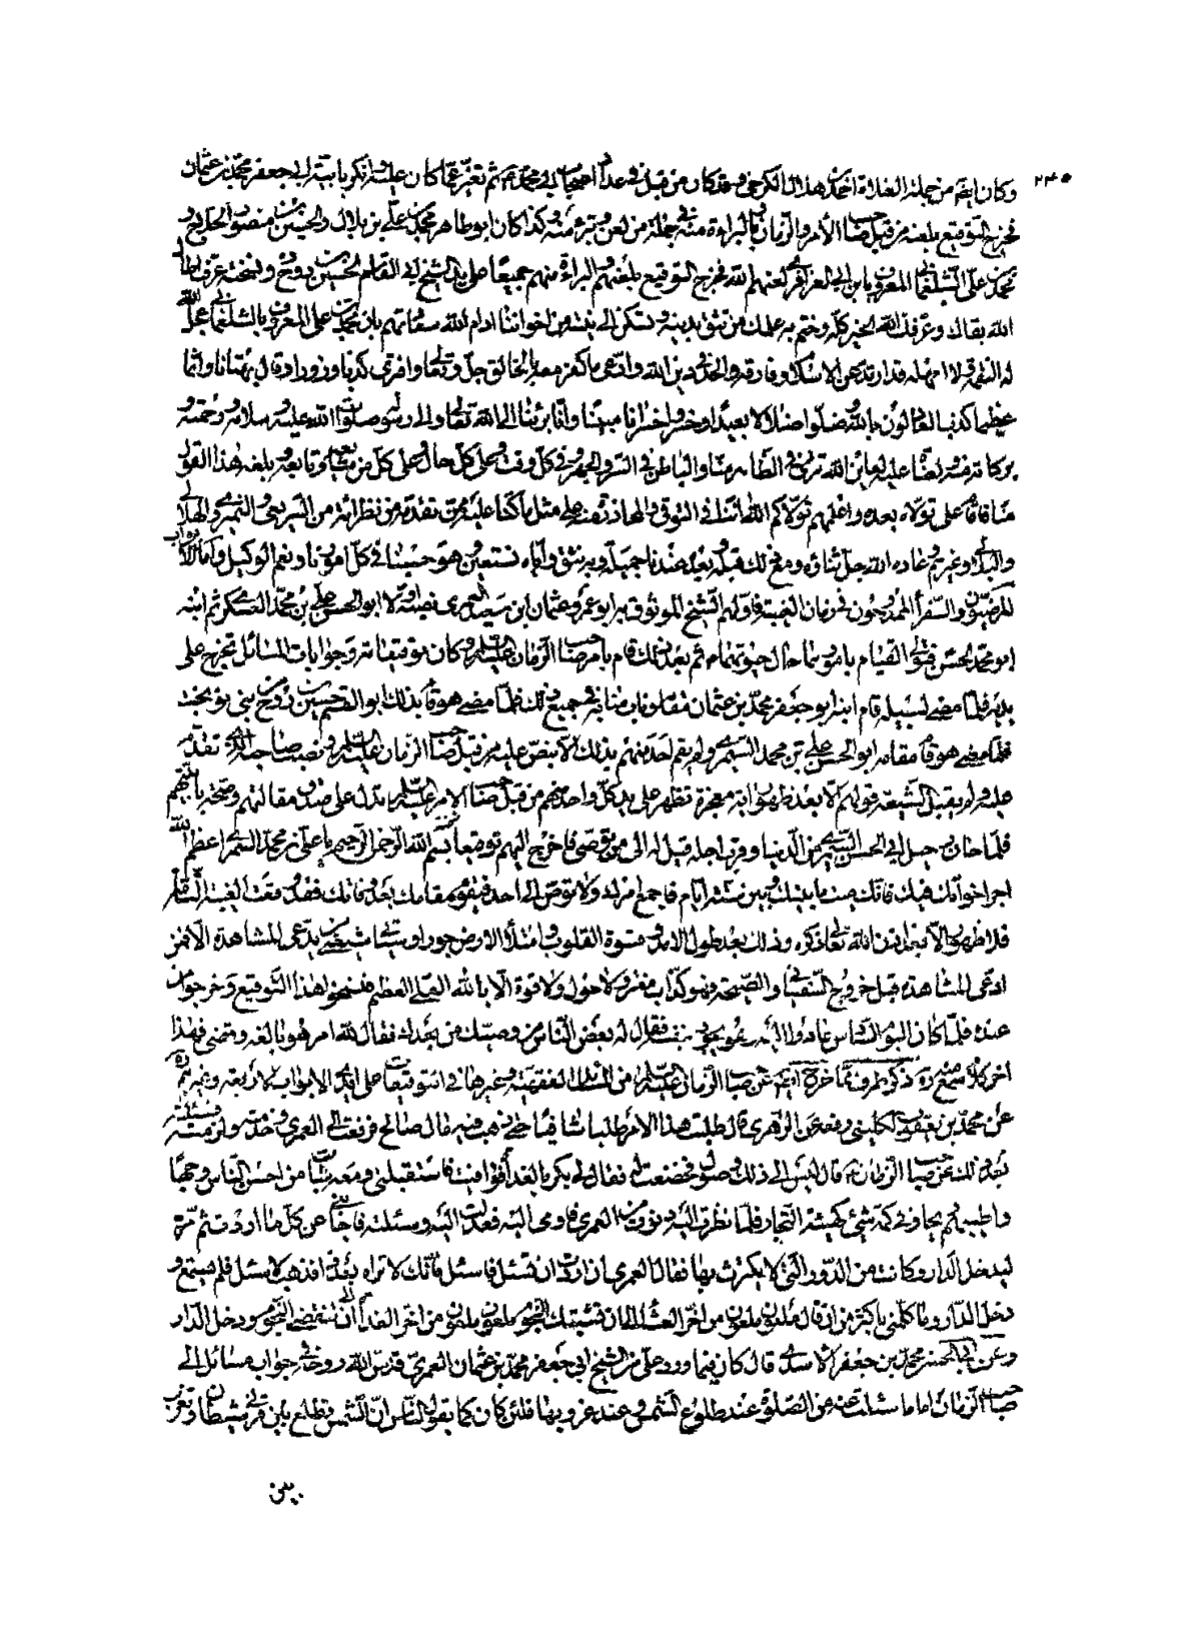 ٢٤٥
وكان ايضا من جملة الغلاة احمد بن هلال الكرخي وقد كان من قبل في عدد اصحاب ابي محمد ع ثم تغير عما كان عليه وانكر بابية ابي جعفر محمد بن عثمان
فخرج التوقيع بلعنه من قبل صاحب الأمر والزمان وبالبراءة منه في جملة من لعن وتبرء منه وكذا كان ابو طاهر محمد بن علي بن بلال والحسين بن منصور الحلاج و
محمد بن علي الشلمغاني المعروف بابن ابي العزاقر لعنهم الله فخرج التوقيع بلعنهم والبراءة منهم جميعا على يد الشيخ ابي القاسم الحسين بن روح ونسخته عرف اطال
الله بقاك وعرفك الله الخير كله وختم به عملك من تثق بدينه وتسكن الى نيته من اخواننا ادام الله سعادتهم بان محمد بن علي المعروف بالشلمغاني عجل الله
له النقمة ولا امهله قد ارتد عن الاسلام وفارقه والحد في دين الله وادعى ما كفر معه بالخالق جل وتعالى وافترى كذبا وزورا وقال بهتانا واثما
عظيما كذب العادلون بالله وضلوا ضلالا بعيدا وخسروا خسرانا مبينا وانا برئنا الى الله تعالى والى رسوله صلوات الله عليه وسلامه ورحمته و
بركاته منه ولعناه عليه لعاين الله تترى في الظاهر منا والباطن في السر والجهر وفي كل وقت وعلى كل حال وعلى كل من شايعه وتابعه وبلغه هذا القول
منا فاقام على تولاه بعده واعلمهم تولاكم الله اننا في التوقي والمحاذرة منه على مثل ما كنا عليه ممن تقدمه من نظرائه من السريعي والنميري والهلالي
والبلالي وغيرهم وعادة الله جل ثناؤه ومع ذلك قبله وبعده عندنا جميلة وبه نثق واياه نستعين وهو حسبنا في كل امورنا ونعم الوكيل واما الابواب
المرضيون والسفراء الممدوحون في زمان الغيبة فاولهم الشيخ الموثوق به ابو عمرو عثمان ابن سعيد العمري نصبه اولا ابو الحسن علي بن محمد العسكري ثم ابنه
ابو محمد الحسن فتولى القيام بامورهما حال حيوتهما ثم بعد ذلك قام بامر صاحب الزمان عليه السلم وكان توقيعاته وجوابات المسائل تخرج على
يديه فلما مضى لسبيله قام ابنه ابو جعفر محمد بن عثمان مقامه وناب منابه في جميع ذلك فلما مضى هو قام بذلك ابو القسم حسين بن روح من بني نوبخت
فلما مضى هو قام مقامه ابو الحسن علي بن محمد السمري ولم يقم احد منهم بذلك الا بنص عليه من قبل صاحب الزمان عليه السلم ونصب صاحبه الذي تقدم
عليه ولم يقبل الشيعة قولهم الا بعد ظهور اية معجزة تظهر على يد كل واحد منهم من قبل صاحب الامر عليه السلم تدل على صدق مقالتهم وصحة بابيتهم
فلما حان رحيل ابي الحسن السمري من الدنيا وقرب اجله قيل له الى من توصي فاخرج اليهم توقيعا نسخته بسم الله الرحمن الرحيم يا علي بن محمد السمري اعظم الله
اجر اخوانك فيك فانك ميت ما بينك وبين ستة ايام فاجمع امرك ولا توص الى احد فيقوم مقامك بعد وفاتك فقد وقعت الغيبة التامة
فلا ظهور الا بعد اذن الله تعالى ذكره وذلك بعد طول الامد وقسوة القلوب وامتلاء الارض جورا وسياتي من شيعتي من يدعي المشاهدة الا فمن
ادعى المشاهدة قبل خروج السفياني والصيحة فهو كذاب مفتر ولا حول ولا قوة الا بالله العلي العظيم فنسخوا هذا التوقيع وخرجوا من
عنده فلما كان اليوم السادس عادوا اليه وهو يجود بنفسه فقال له بعض الناس من وصيك من بعدك فقال لله امر هو بالغه وقضى فهذا
اخر كلام سمع منه ره ذكر طرف مما خرج ايضا عن صاحب الزمان عليه السلم من المسائل الفقهية وغيرها في التوقيعات على ايدي الابواب الاربعة وغيرهم
عن محمد بن يعقوب الكليني رفعه عن الزهري قال طلبت هذا الامر طلبا شاقا حتى ذهب فيه مال صالح فرفعت الى العمري وخدمته ولزمته فسئلته
بعد ذلك عن صاحب الزمان ع قال ليس الى ذلك وصول فخضعت له فقال لي بكر بالغداة فوافيت فاستقبلني ومعه شاب من احسن الناس وجها
واطيبهم ريحا وفي كمه شئ كهيئة التجار فلما نظرت اليه دنوت من العمري فاومى اليه فعدلت اليه وسئلته فاجابني عن كل ما اردت ثم مر
ليدخل الدار وكانت من الدور التي لا يكترث بها فقال العمري ان اردت ان تسئل فاسئل فانك لا تراه بعد ذا فذهبت لاسئل فلم يستمع و
دخل الدار وما كلمني باكثر من ان قال ملعون ملعون من اخر العشاء الى ان تشتبك النجوم ملعون ملعون من اخر الغداة الى ان تنقضي النجوم ودخل الدار
وعن ابي الحسن محمد بن جعفر الاسدي قال كان فيما ورد علي من الشيخ ابي جعفر محمد بن عثمان العمري قدس الله روحه في جواب مسائل الى
صاحب الزمان اما ما سئلت عنه من الصلوة عند طلوع الشمس وعند غروبها فلئن كان كما يقول الناس ان الشمس تطلع بين قرني شيطان وتغرب
بين